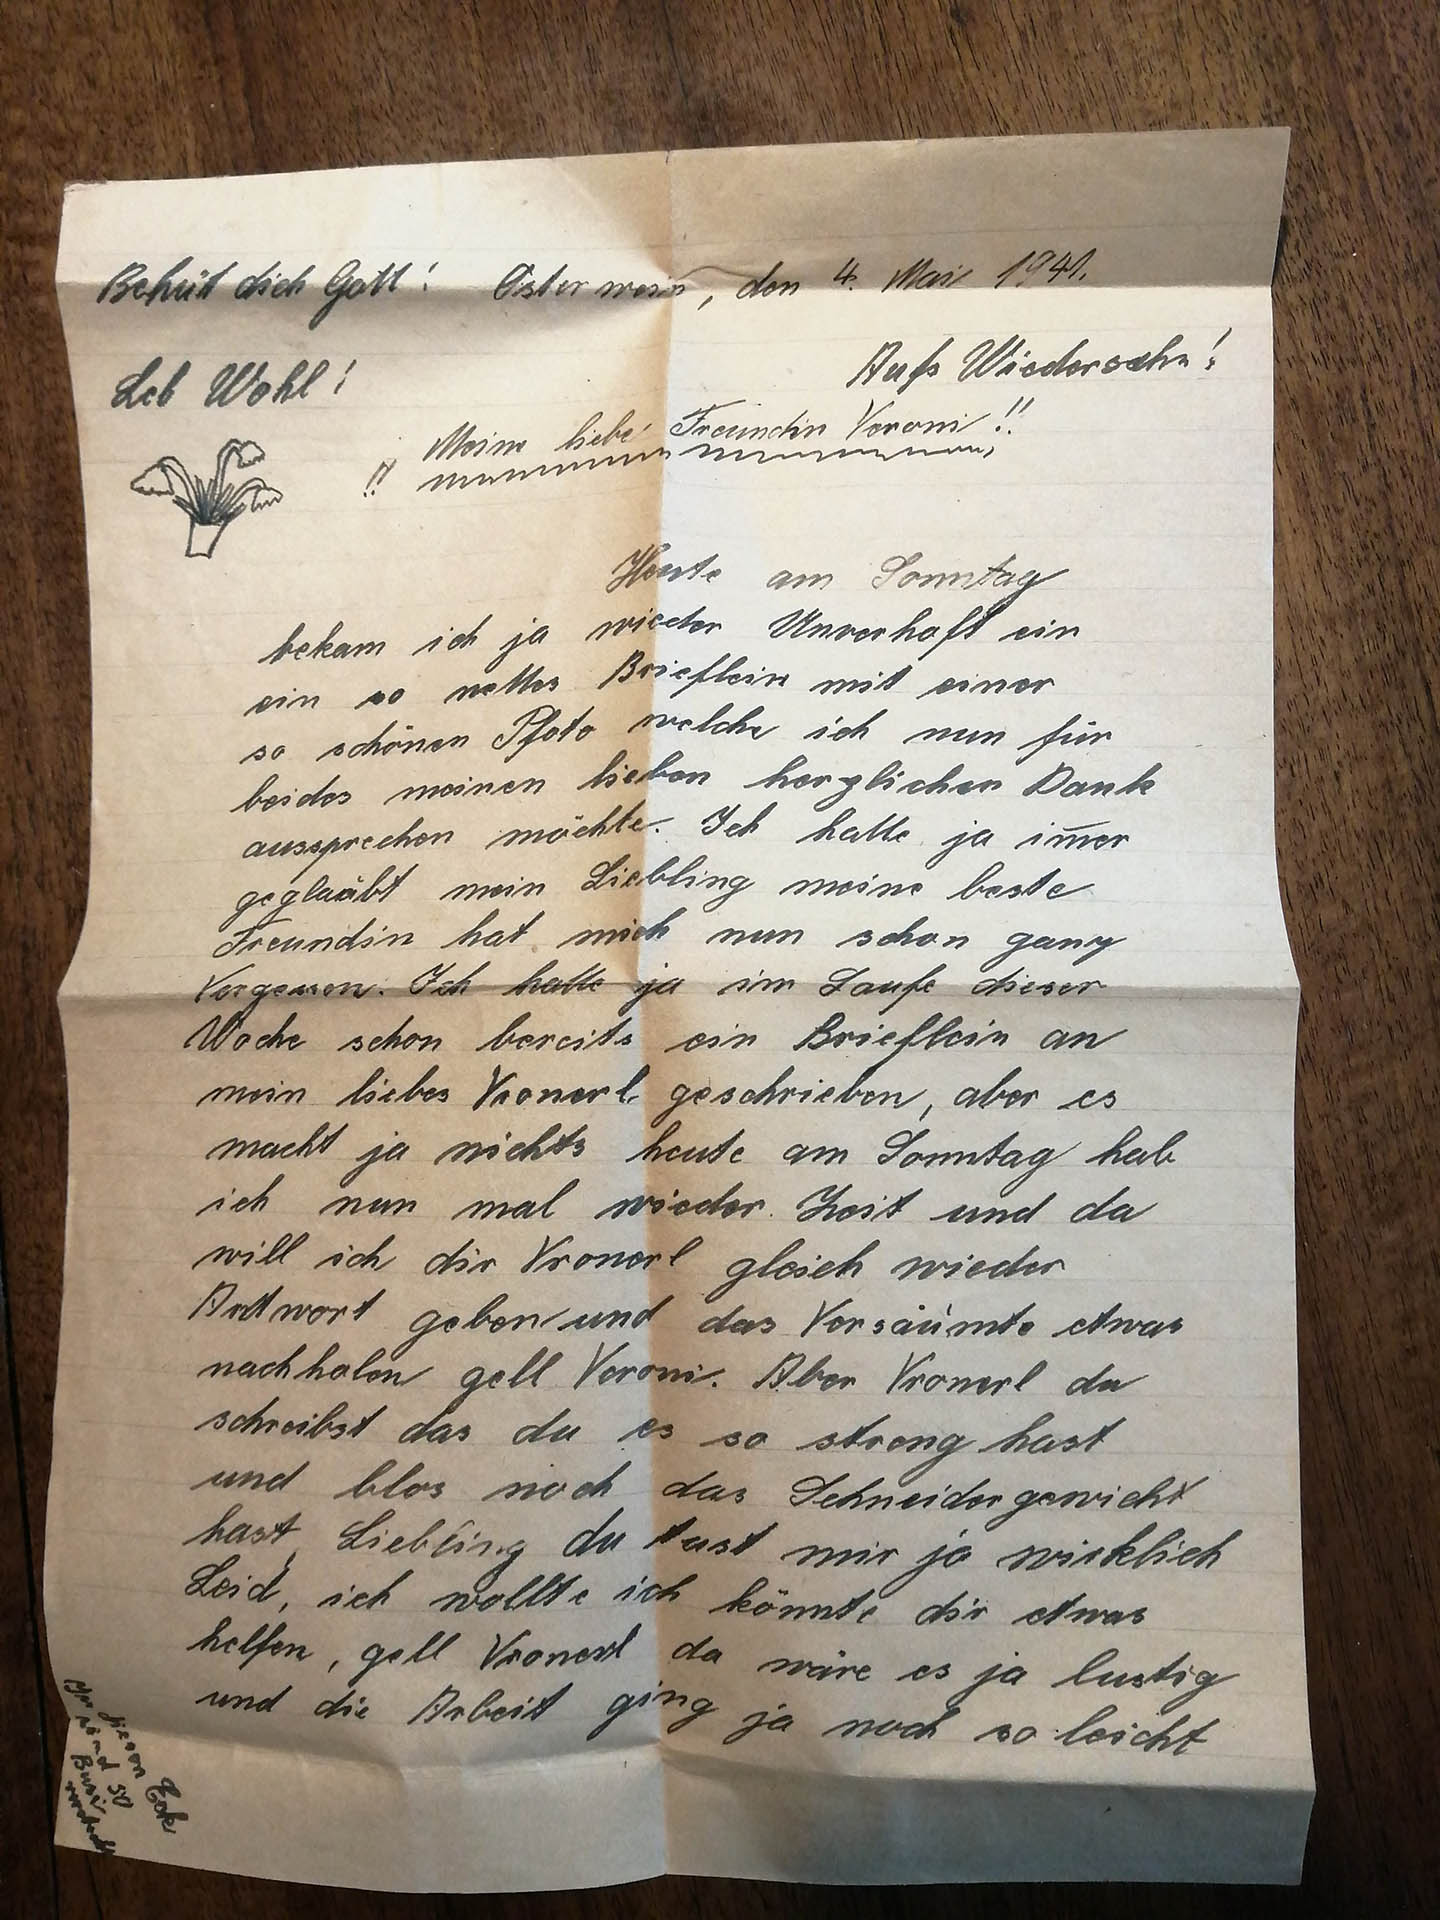 Behüt dich Gott! Osterwein, den 4. Mai 1941.
Aufs Wiedersehn!
Leb Wohl!
!! Meine liebe Freundin Veroni!!
Heute am Sonntag
bekam ich ja wieder Unverhoft ein
ein so nettes Brieflein mit einer
so schönen Pfoto welche ich nun für
beides meinen lieben herzlichen Dank
aussprechen möchte. Ich hatte ja im̄er
geglaübt mein Liebling meine beste
Freundin hat mich nun schon ganz
Vergessen. Ich hatte ja im Laufe dieser
Woche schon bereits ein Brieflein an
mein liebes Vronerl geschrieben, aber es
macht ja nichts heute am Sonntag hab
ich nun mal wieder Zeit und da
will ich dir Vronerl gleich wieder
Antwort geben und das Versäumte etwas
nachholen gell Veroni. Aber Vronerl du
schreibst das du es so streng hast
und blos noch das Schneidergewicht
hast, Liebling du tust mir ja wirklich
Leid, ich wollte ich könnte dir etwas
helfen, gell Vronerl da wäre es ja lustig
und die Arbeit ging ja noch so leicht
In diesen Eck
sind 50
Busi
versteckt